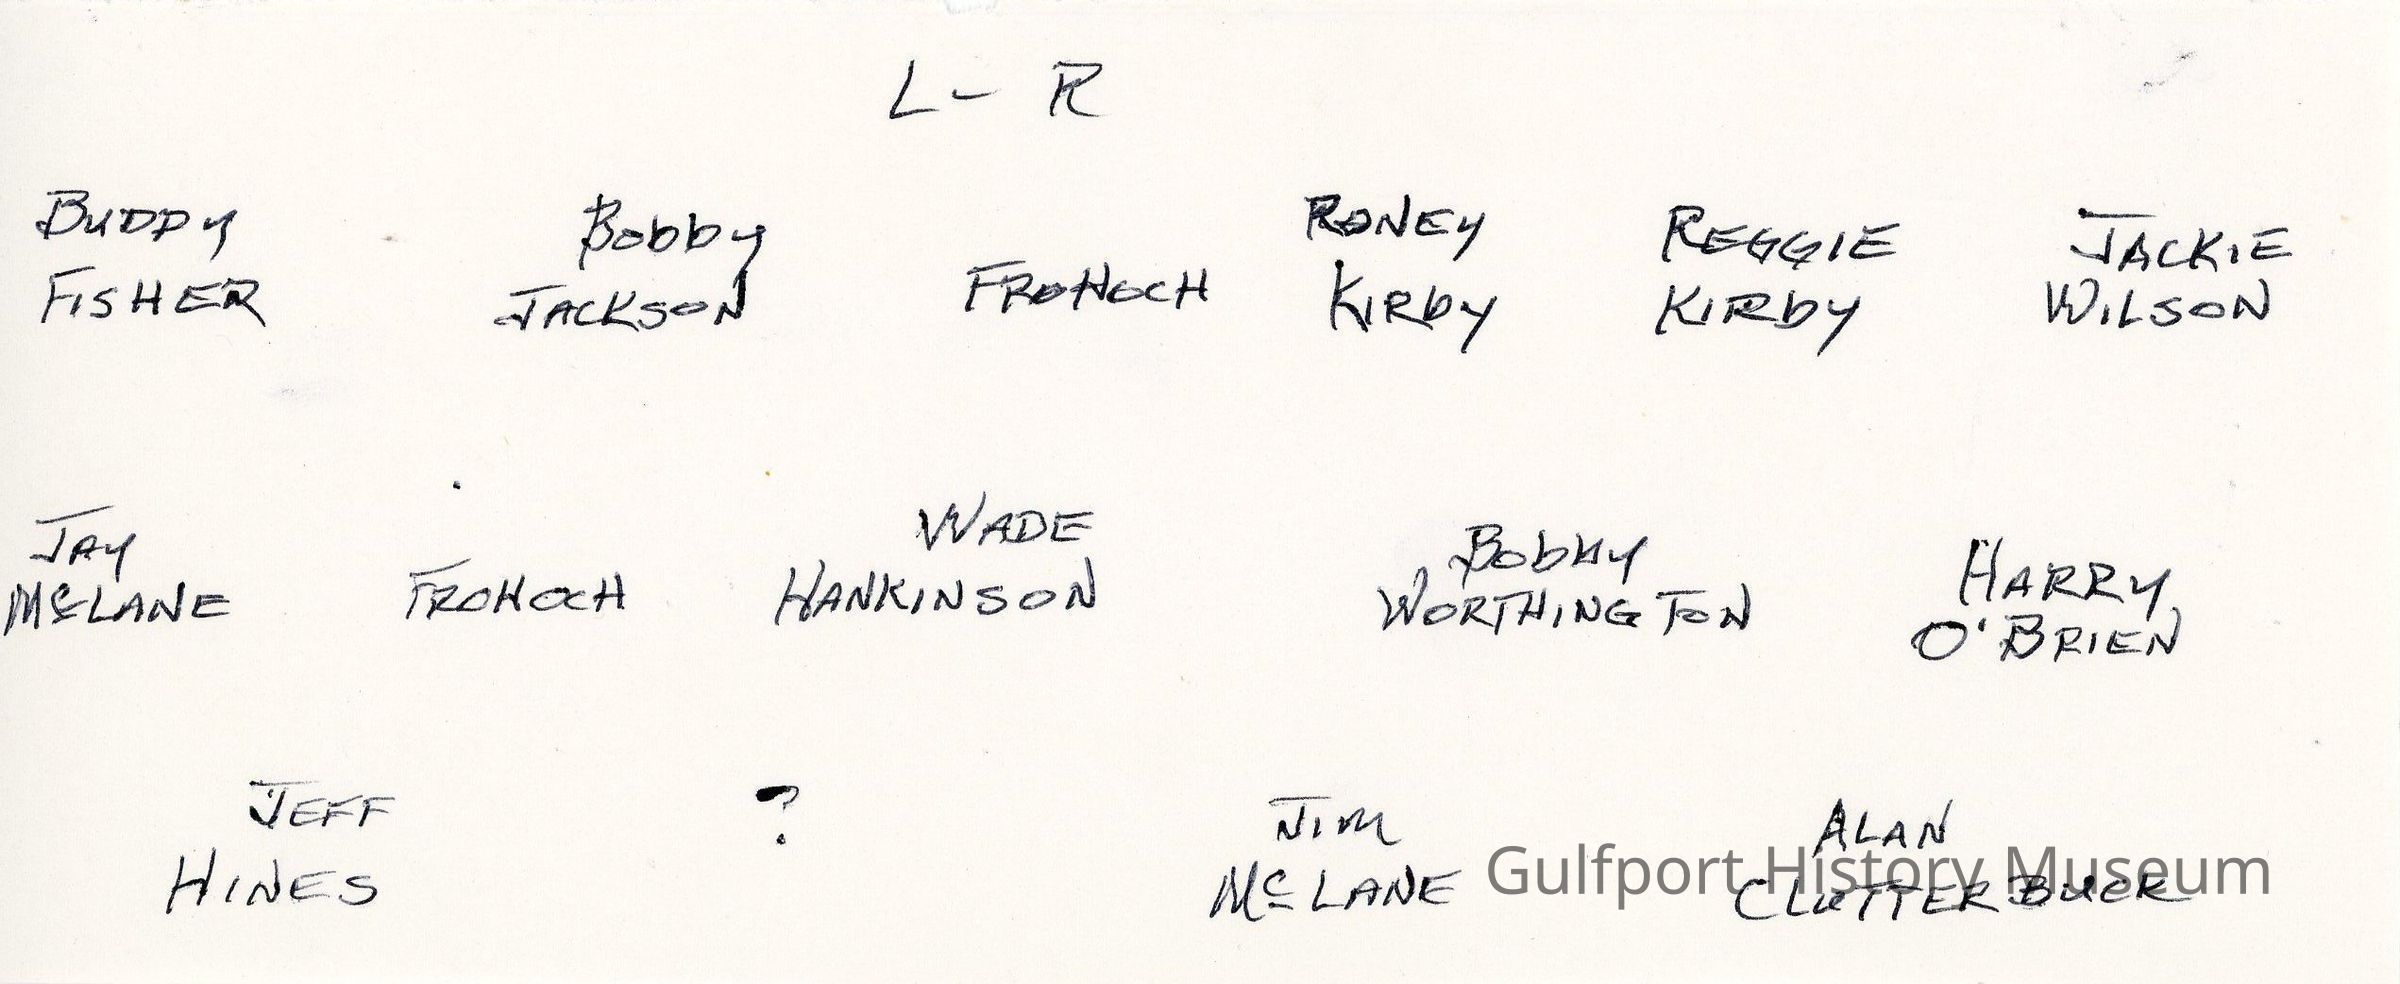 L- R
BUDDY Bobby RONEY REGGIE JACKIE
FISHER JACKSON FROHOCH KIRBY KIRBY WILSON
JAY WADE BObby HARRY
McLANE FROHOCH HANKINSON WORTHINGTON O'BRIEN
JEFF ? JIM ALAN
HINES McLANE CLUTTERBUCK
Gulfport History Museum